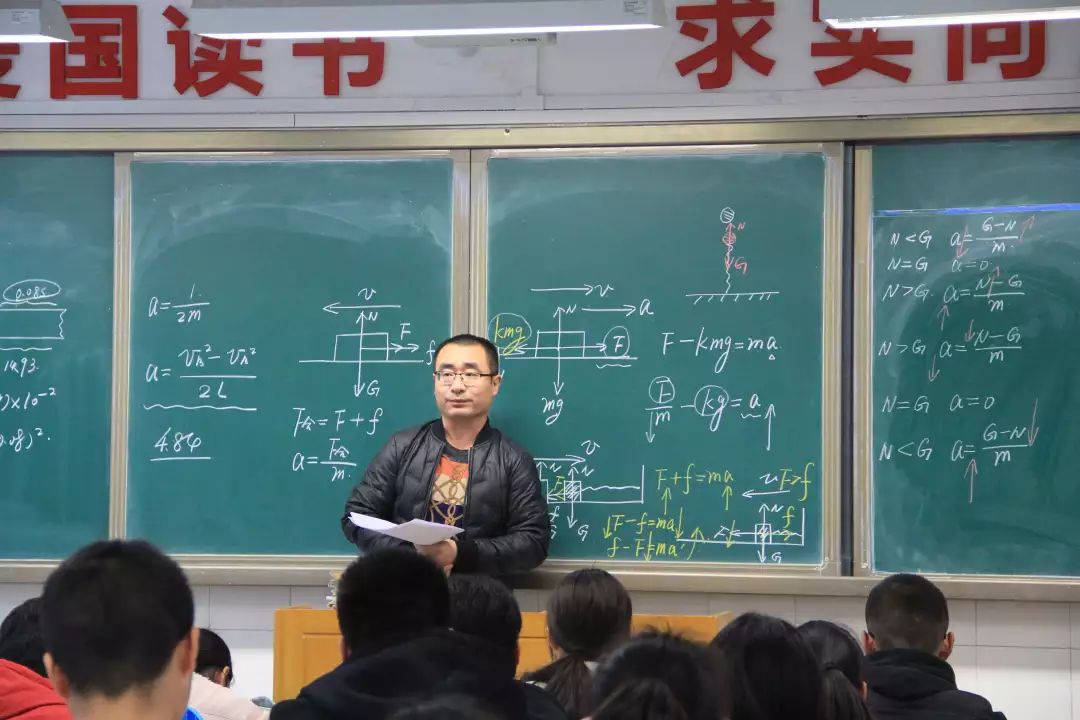 国读书 求实问
0.085
1.93
)×10⁻²
0.08)².
a=1/2m
a=(V_A²-V_A²)/2L
4.84
v
N
F
f
G
F合=F+f
a=F合/m
v
N
a
kmg
F
mg
N
G
F-kmg=ma
F/m-kg=a
v
N
F
f
G
F+f=ma
F-f=ma
f-F=ma
v F>f
N
f
G
N<G a=(G-N)/m
N=G a=0
N>G a=(N-G)/m
N>G a=(N-G)/m
N=G a=0
N<G a=(G-N)/m